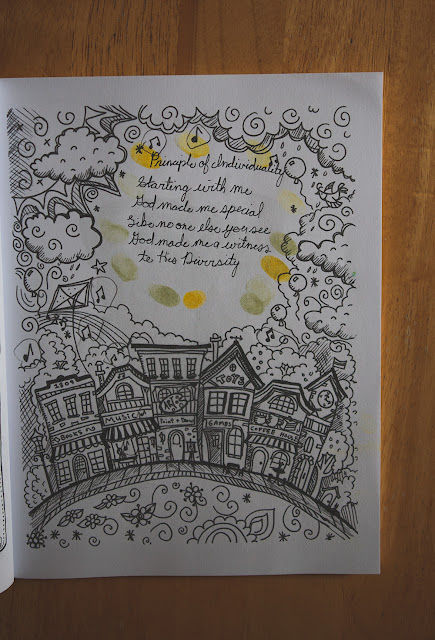 Principle of Individuality
Starting with me
God made me special
Like no one else you see
God made me a witness
to His Diversity
TOYS
MUSIC
GAMES
COFFEE HOUSE